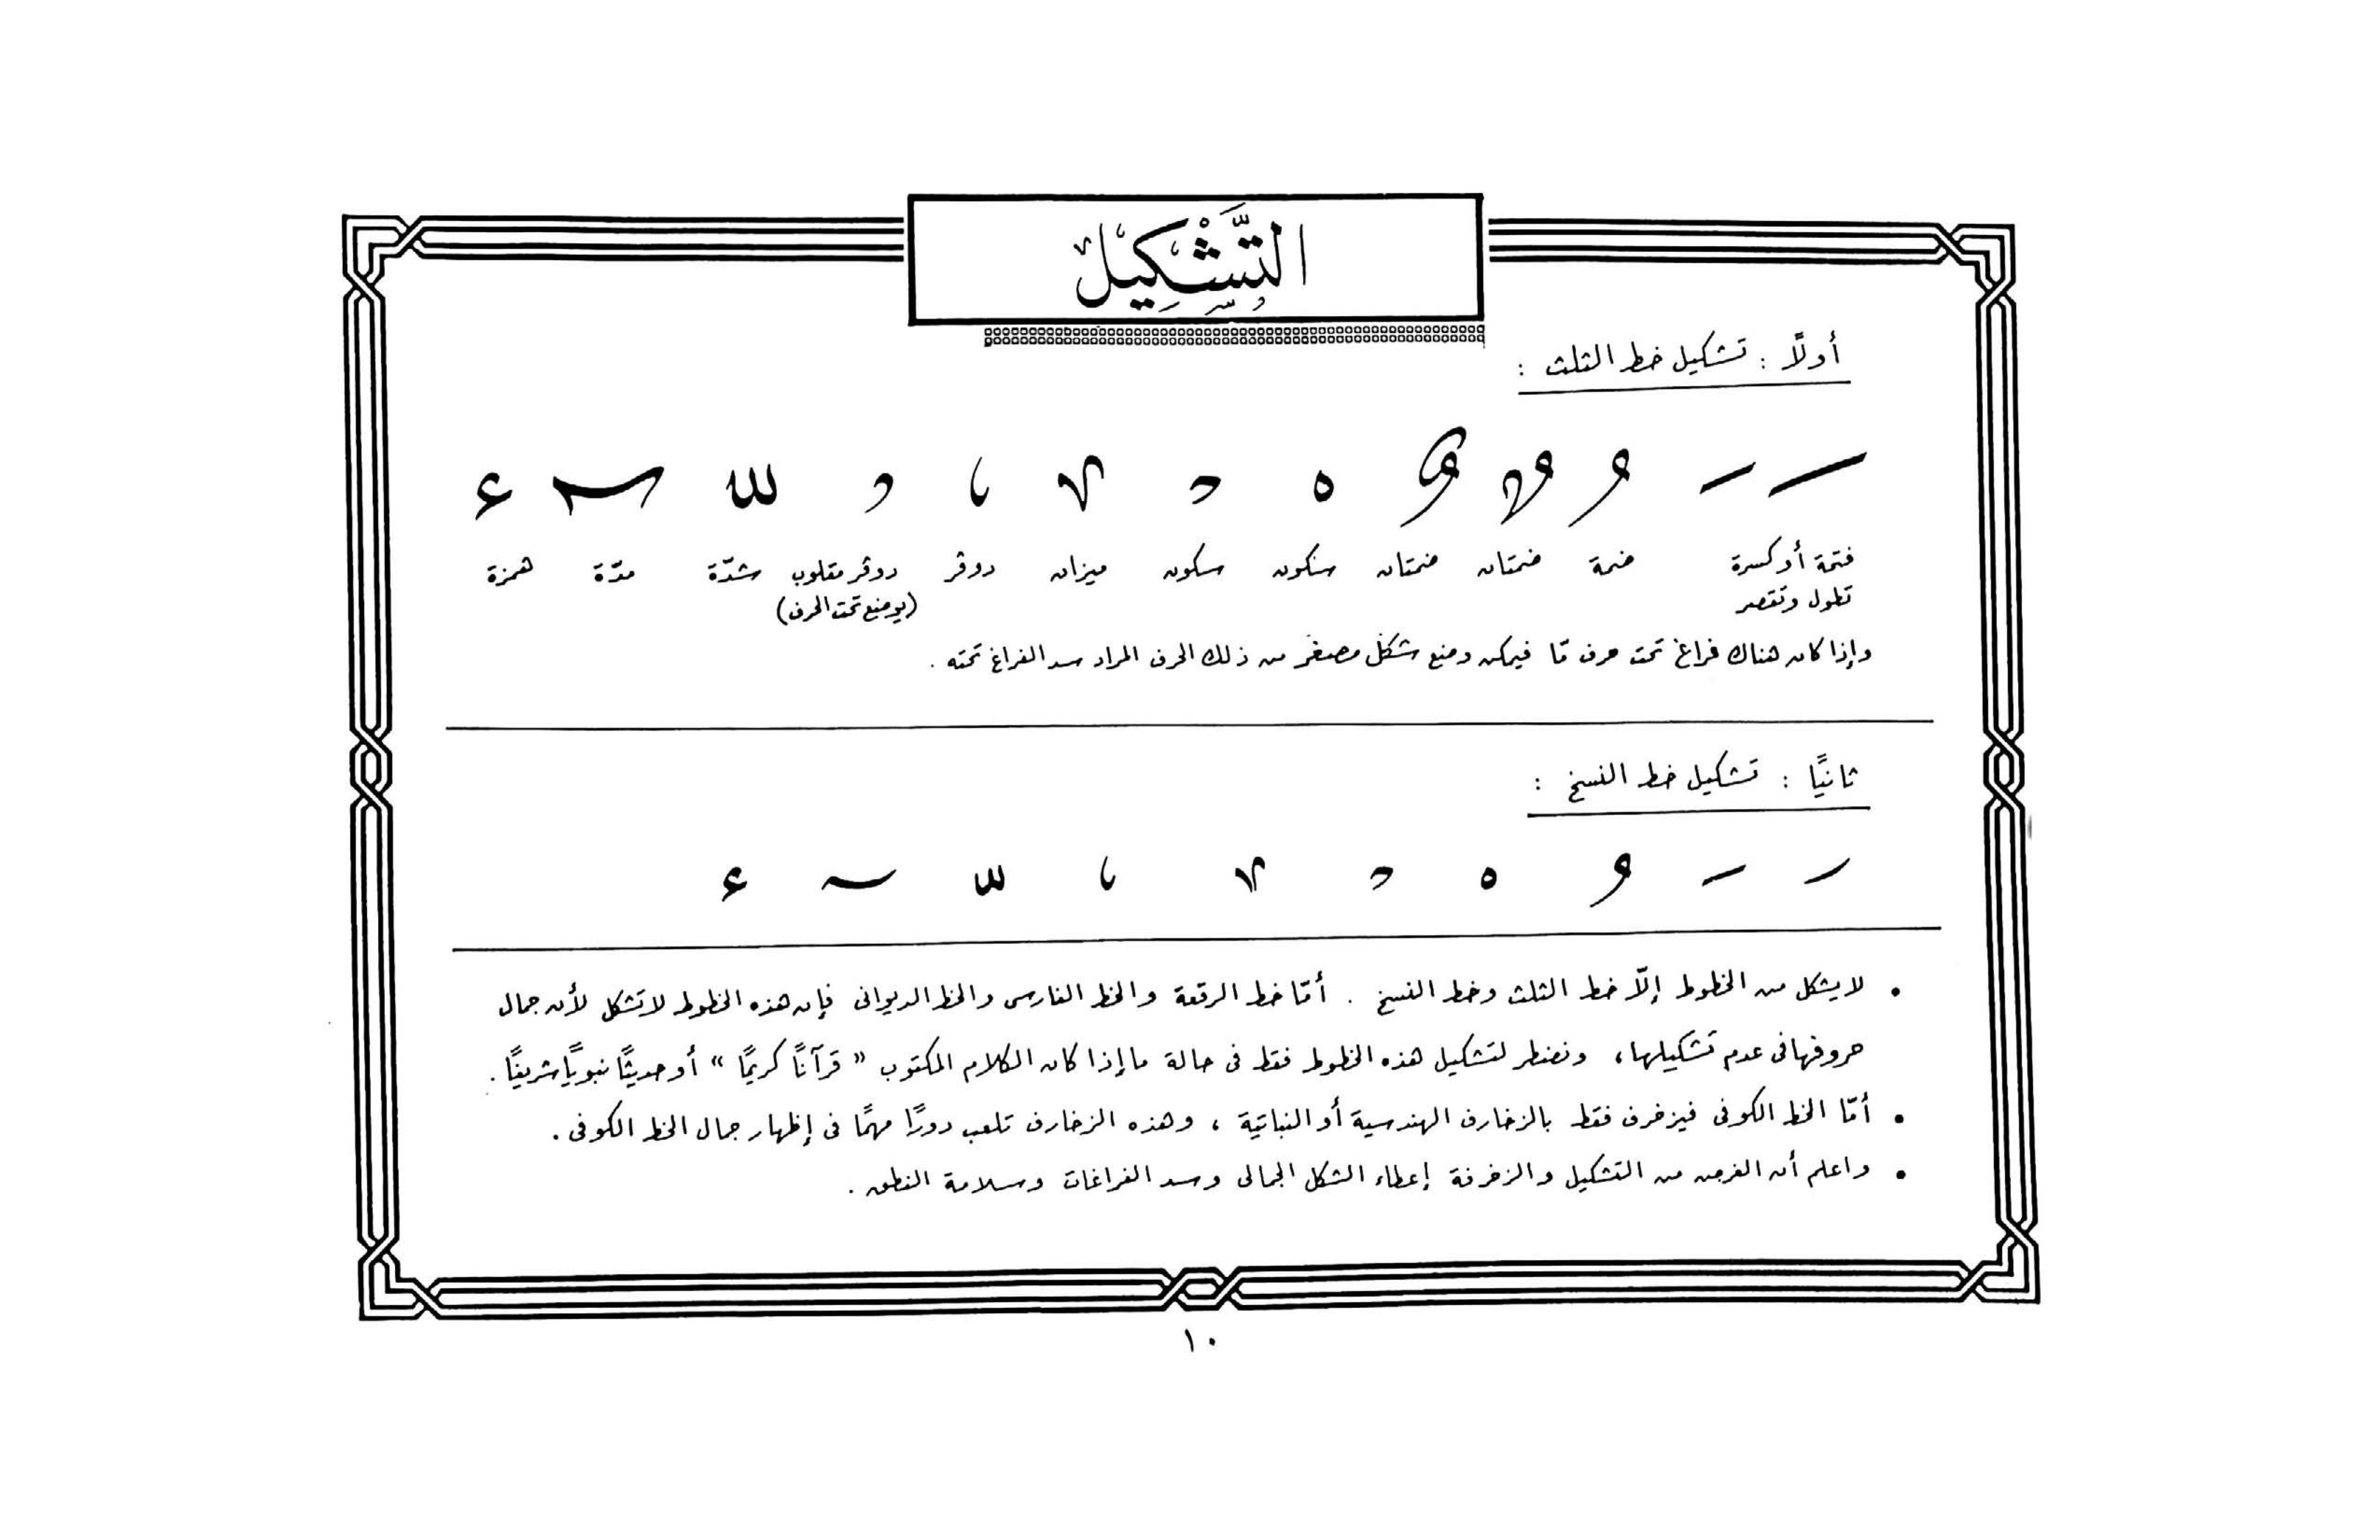 التَّشْكِيل
أولاً : تشكيل خط الثلث :
فتحة أو كسرة ضمة ضمتان ضمتان سكون سكون ميزان دوڤر دوڤر مقلوب شدّة مدّة همزة
تطول وتقصر (يوضع تحت الحرف)
وإذا كان هناك فراغ تحت حرف مّا فيمكن وضع شكل مصغر من ذلك الحرف المراد سد الفراغ تحته .
ثانيًا : تشكيل خط النسخ :
• لا يشكل من الخطوط إلّا خط الثلث وخط النسخ . أمّا خط الرقعة والخط الفارسى والخط الديوانى فإن هذه الخطوط لا تشكل لأن جمال
حروفها فى عدم تشكيلها ، ونضطر لتشكيل هذه الخطوط فقط فى حالة ما إذا كان الكلام المكتوب « قرآنًا كريمًا » أو حديثًا نبويًا شريفًا .
• أمّا الخط الكوفى فيزخرف فقط بالزخارف الهندسية أو النباتية ، وهذه الزخارف تلعب دورًا مهمًا فى إظهار جمال الخط الكوفى .
• واعلم أن الغرض من التشكيل والزخرفة إعطاء الشكل الجمالى وسد الفراغات وسلامة النطق .
١٠